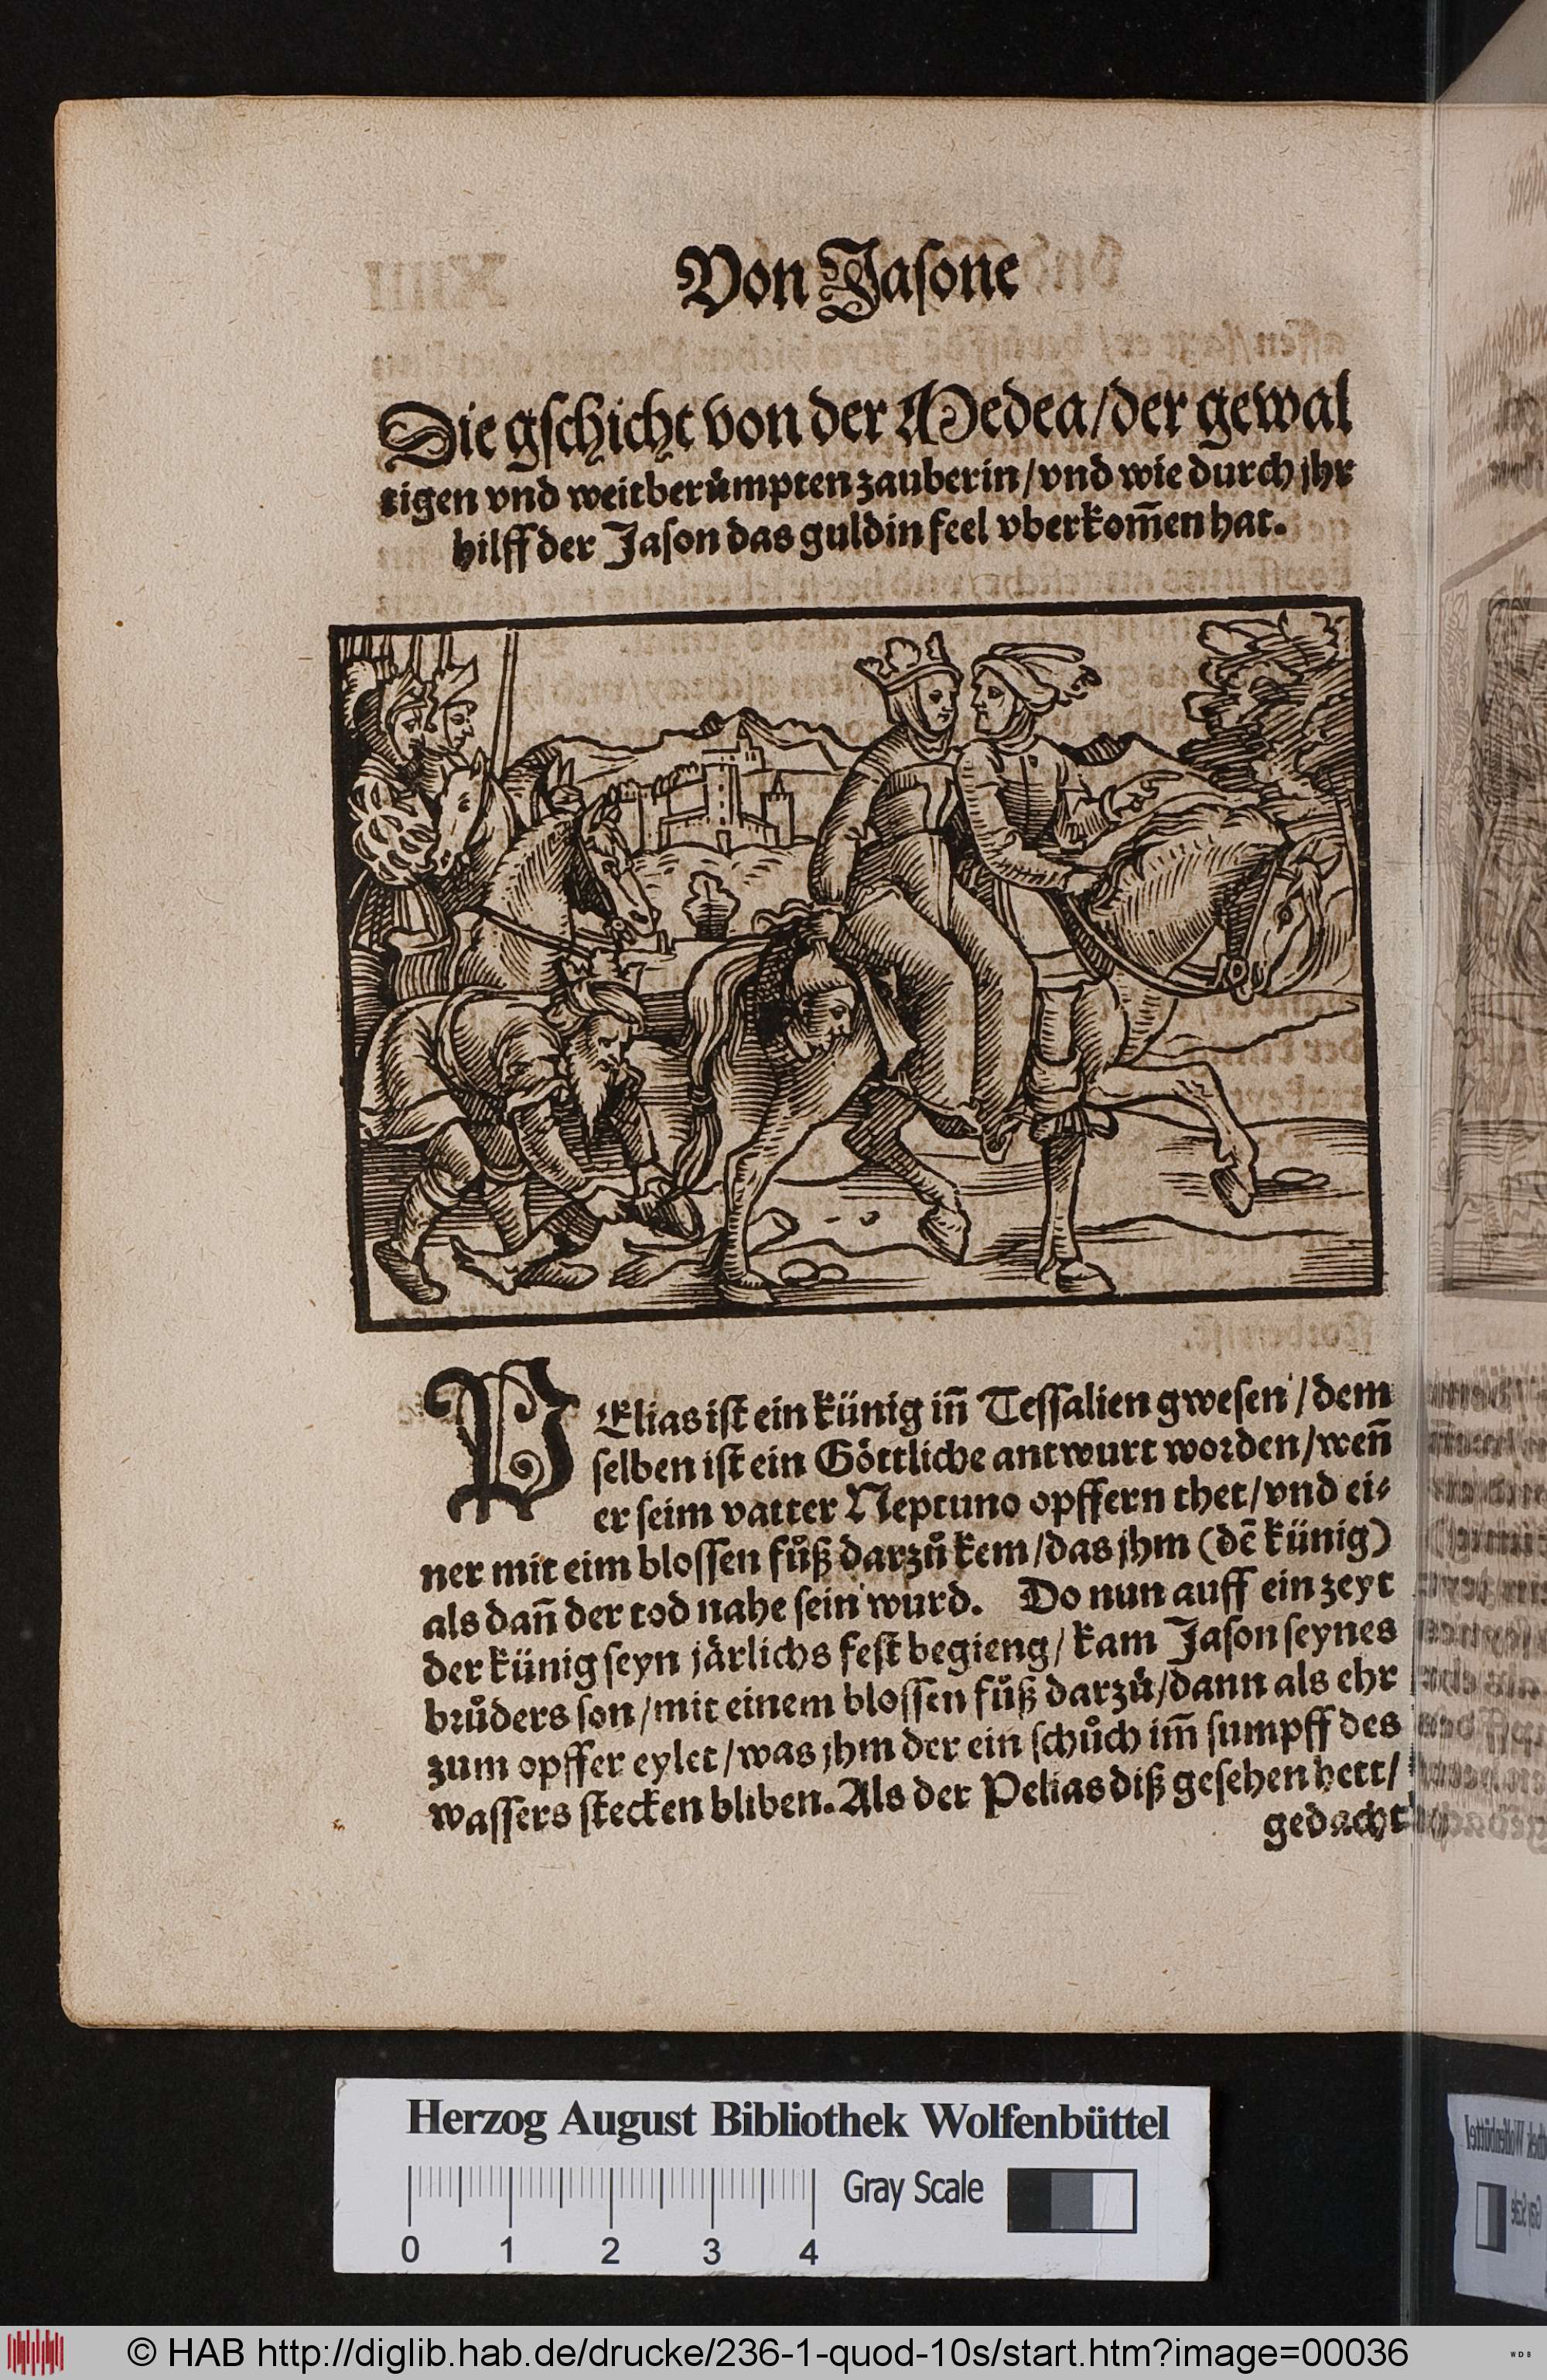 Von Jasone
Die gschicht von der Medea/der gewal
tigen vnd weitberuͤmpten zauberin/vnd wie durch jhr
hilff der Jason das guldin feel vberkom̃en hat.
PElias ist ein künig in̄ Tessalien gwesen/dem
selben ist ein Göttliche antwurt worden/weñ
er seim vatter Neptuno opffern thet/vnd ei⸗
ner mit eim blossen fuͦß darzuͦ kem/das jhm (dē künig)
als dañ der tod nahe sein wurd. Do nun auff ein zeyt
der künig seyn järlichs fest begieng/kam Jason seynes
bruͦders son/mit einem blossen fuͦß darzuͦ/dann als ehr
zum opffer eylet/was jhm der ein schuͦch im̃ sumpff des
wassers stecken bliben. Als der Pelias diß gesehen hett/
gedacht
Herzog August Bibliothek Wolfenbüttel
Gray Scale
0 1 2 3 4
© HAB http://diglib.hab.de/drucke/236-1-quod-10s/start.htm?image=00036